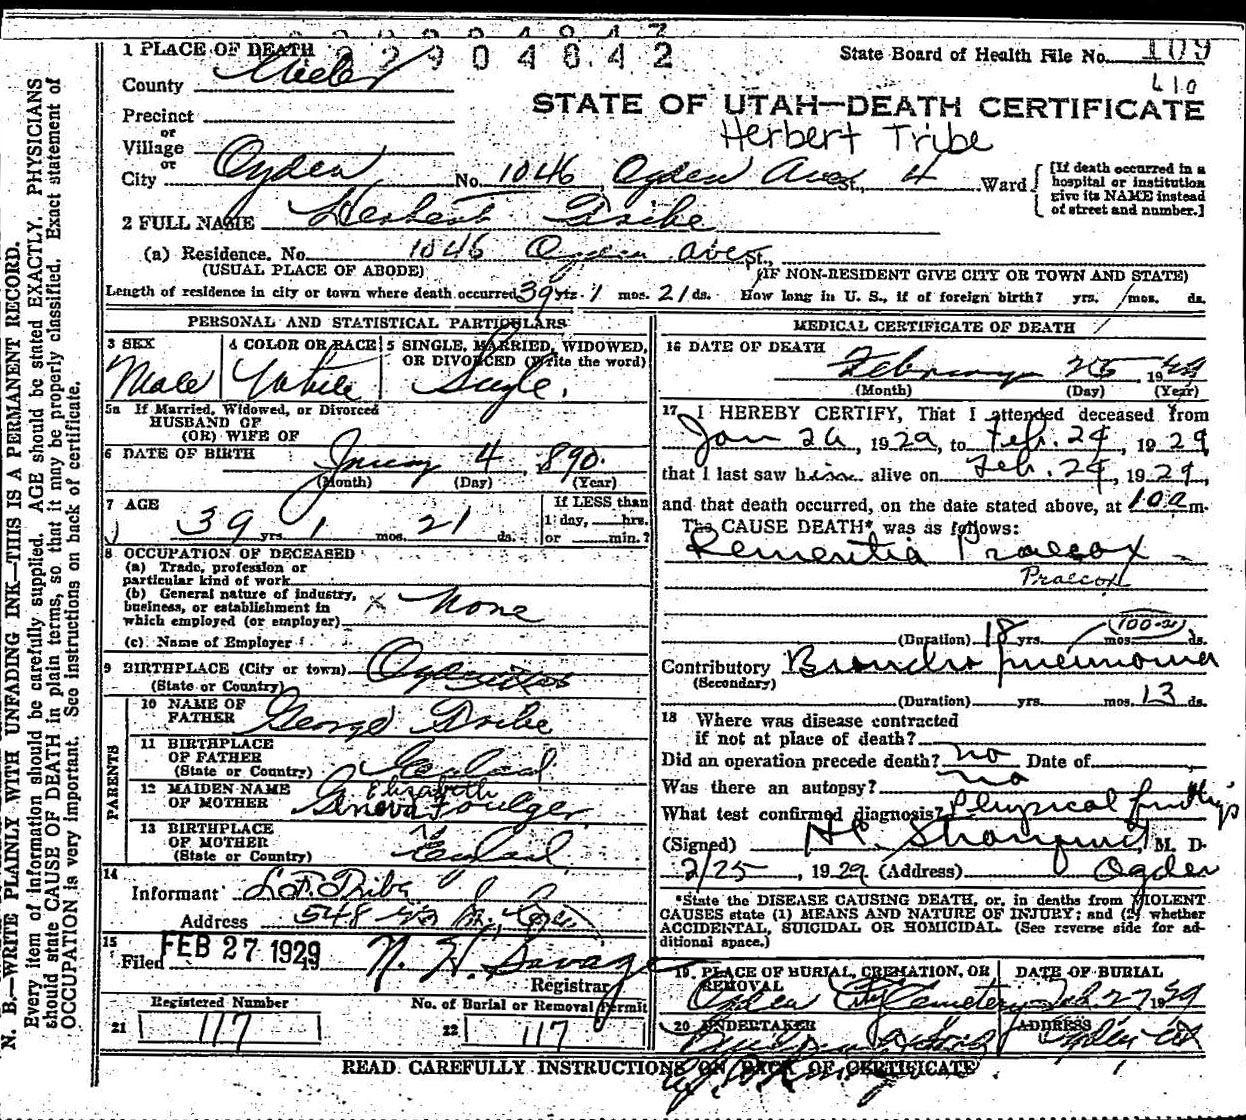 2 9 0 4 8 4 2
1 PLACE OF DEATH
State Board of Health File No. 109
County Weber
L10
STATE OF UTAH—DEATH CERTIFICATE
Precinct
Herbert Tribe
or
Village
or
City Ogden No. 1046 Ogden Ave St., 4 Ward
[If death occurred in a hospital or institution give its NAME instead of street and number.]
2 FULL NAME Herbert Tribe
(a) Residence. No. 1046 Ogden ave St.,
(USUAL PLACE OF ABODE) (IF NON-RESIDENT GIVE CITY OR TOWN AND STATE)
Length of residence in city or town where death occurred 39 yrs. 1 mos. 21 ds. How long in U. S., if of foreign birth? yrs. mos. ds.
PERSONAL AND STATISTICAL PARTICULARS
3 SEX
Male
4 COLOR OR RACE
White
5 SINGLE, MARRIED, WIDOWED,
OR DIVORCED (Write the word)
Single.
5a If Married, Widowed, or Divorced
HUSBAND OF
(OR) WIFE OF
6 DATE OF BIRTH 4 890.
(Month) (Day) (Year)
7 AGE
39 yrs. 1 mos. 21 ds.
If LESS than
1 day, hrs.
or min.?
8 OCCUPATION OF DECEASED
(a) Trade, profession or
particular kind of work
(b) General nature of industry,
business, or establishment in
which employed (or employer) x None
(c) Name of Employer
9 BIRTHPLACE (City or town)
(State or Country)
PARENTS
10 NAME OF
FATHER George Tribe
11 BIRTHPLACE
OF FATHER
(State or Country) England
12 MAIDEN NAME
OF MOTHER Elizabeth
Geneva Foulger
13 BIRTHPLACE
OF MOTHER
(State or Country) England
14
Informant Tribe
Address 548
15
Filed FEB 27 1929 N. H. Savage
Registrar
Registered Number
21 117
No. of Burial or Removal Permit
22 117
MEDICAL CERTIFICATE OF DEATH
16 DATE OF DEATH
February 25, 1929
(Month) (Day) (Year)
17 I HEREBY CERTIFY, That I attended deceased from
Jan 26, 1929, to Feb. 24, 1929
that I last saw him alive on Feb. 24, 1929,
and that death occurred, on the date stated above, at 1 00 a m.
The CAUSE DEATH* was as follows:
Dementia Praecox
Praecox
(Duration) 18 yrs. mos. ds.
Contributory Broncho pneumonia
(Secondary)
(Duration) yrs. mos. 13 ds.
18 Where was disease contracted
if not at place of death?
Did an operation precede death? no Date of
Was there an autopsy? no
What test confirmed diagnosis? Physical findings
(Signed) M. D.
2/25, 1929 (Address) Ogden
*State the DISEASE CAUSING DEATH, or, in deaths from VIOLENT
CAUSES state (1) MEANS AND NATURE OF INJURY; and (2) whether
ACCIDENTAL, SUICIDAL OR HOMICIDAL. (See reverse side for ad-
ditional space.)
19. PLACE OF BURIAL, CREMATION, OR
REMOVAL
Ogden City Cemetery
DATE OF BURIAL
Feb. 27 1929
20 UNDERTAKER
ADDRESS
READ CAREFULLY INSTRUCTIONS ON BACK OF CERTIFICATE
N. B.—WRITE PLAINLY WITH UNFADING INK—THIS IS A PERMANENT RECORD.
Every item of information should be carefully supplied. AGE should be stated EXACTLY. PHYSICIANS
should state CAUSE OF DEATH in plain terms, so that it may be properly classified. Exact statement of
OCCUPATION is very important. See instructions on back of certificate.